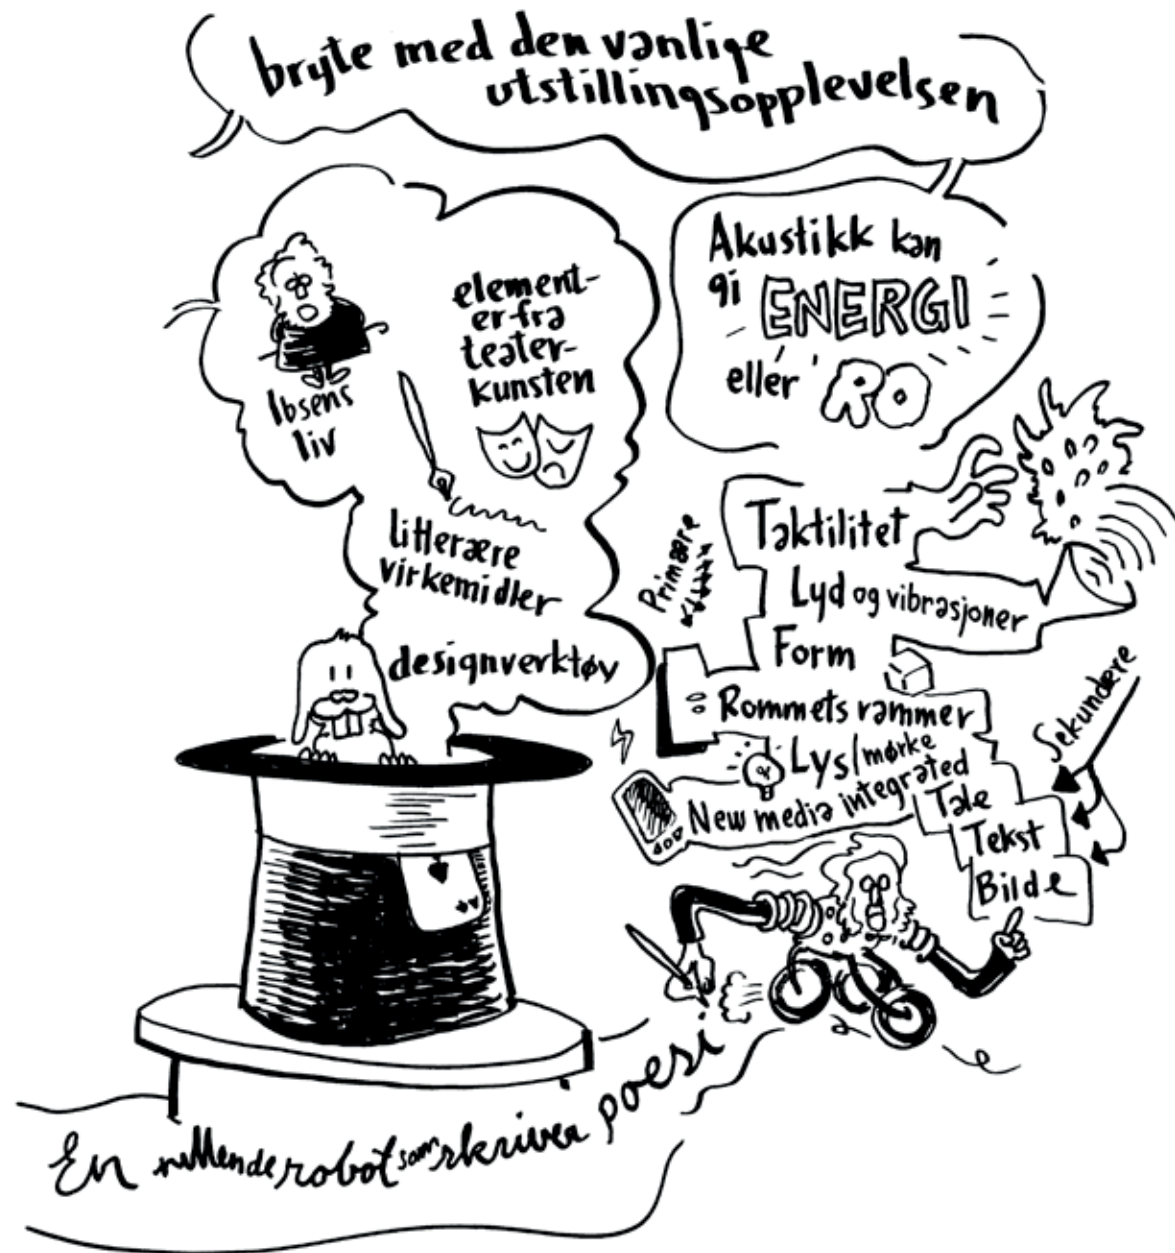 bryte med den vanlige
utstillingsopplevelsen
Ibsens
liv
element-
er fra
teater-
kunsten
litterære
virkemidler
designverktøy
Akustikk kan
gi ENERGI
eller RO
Primære
Taktilitet
Lyd og vibrasjoner
Form
Rommets rammer
Lys/mørke
New media integrated
Sekundære
Tale
Tekst
Bilde
En rullende robot som skriver poesi